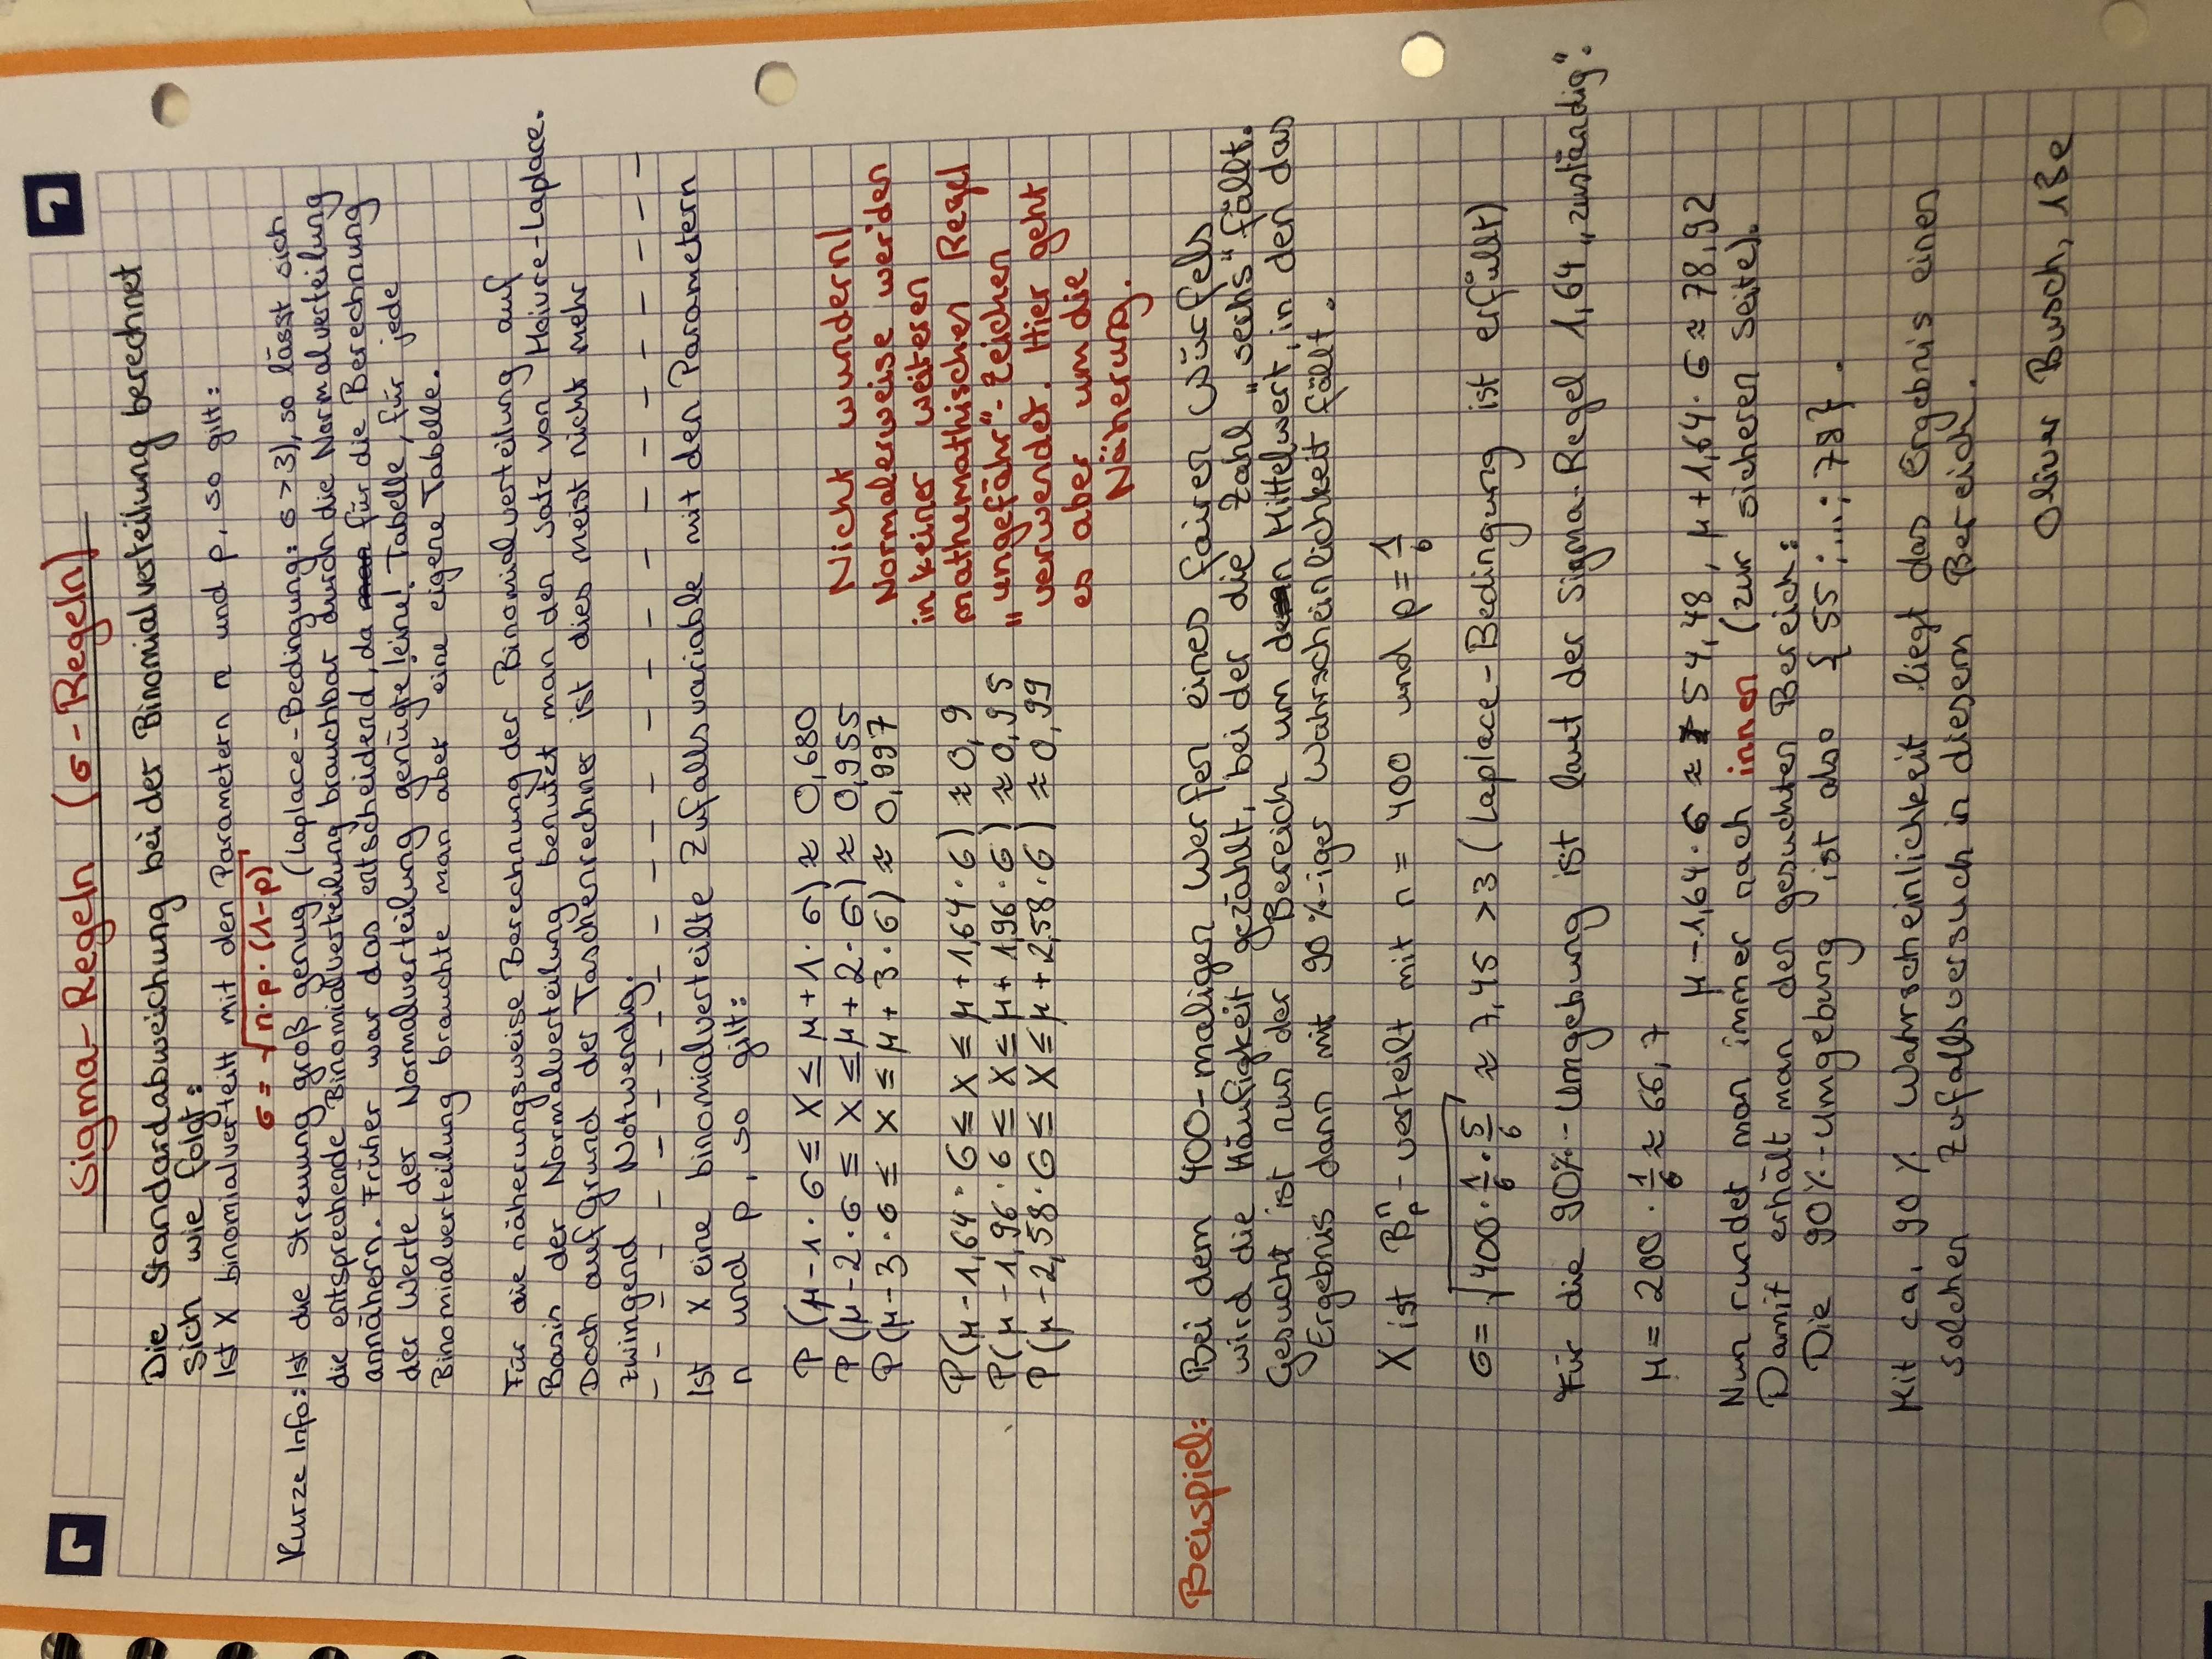 Sigma-Regeln (σ-Regeln)
Die Standardabweichung bei der Binomialverteilung berechnet
sich wie folgt:
Ist X binomialverteilt mit den Parametern n und p, so gilt:
σ = √n·p·(1-p)
Kurze Info: Ist die Streuung groß genug (Laplace-Bedingung: σ > 3), so lässt sich
die entsprechende Binomialverteilung brauchbar durch die Normalverteilung
annähern. Früher war das entscheidend, da für die Berechnung
der Werte der Normalverteilung genügte (eine! Tabelle, für jede
Binomialverteilung brauchte man aber eine eigene Tabelle.
Für die näherungsweise Berechnung der Binomialverteilung auf
Basis der Normalverteilung benutzt man den Satz von Moivre-Laplace.
Doch auf Grund der Taschenrechner ist dies meist nicht mehr
zwingend Notwendig.
Ist X eine binomialverteilte Zufallsvariable mit den Parametern
n und p, so gilt:
P(μ-1·σ ≤ X ≤ μ+1·σ) ≈ 0,680
P(μ-2·σ ≤ X ≤ μ+2·σ) ≈ 0,955
P(μ-3·σ ≤ X ≤ μ+3·σ) ≈ 0,997
P(μ-1,64·σ ≤ X ≤ μ+1,64·σ) ≈ 0,9
P(μ-1,96·σ ≤ X ≤ μ+1,96·σ) ≈ 0,95
P(μ-2,58·σ ≤ X ≤ μ+2,58·σ) ≈ 0,99
Nicht wundern!
Normalerweise werden
in keiner weiteren
mathemathischen Regel
"ungefähr"-Zeichen
verwendet. Hier geht
es aber um die
Näherung.
Beispiel: Bei dem 400-maligen Werfen eines fairen Würfels
wird die Häufigkeit gezählt, bei der die Zahl "sechs" fällt.
Gesucht ist nun der Bereich um den Mittelwert, in den das
Ergebnis dann mit 90%-iger Wahrscheinlichkeit fällt.
X ist Bⁿₚ-verteilt mit n = 400 und p = 1/6
σ = √400·1/6·5/6 ≈ 7,45 > 3 (Laplace-Bedingung ist erfüllt)
Für die 90%-Umgebung ist laut der Sigma-Regel 1,64 „zuständig".
μ = 200·1/6 ≈ 66,7
μ-1,64·σ ≈ 54,48, μ+1,64·σ ≈ 78,92
Nun rundet man immer nach innen (zur sicheren Seite).
Damit erhält man den gesuchten Bereich:
Die 90%-Umgebung ist also {55;...;78}.
Mit ca. 90% Wahrscheinlichkeit liegt das Ergebnis eines
solchen Zufallsversuch in diesem Bereich.
Oliver Busch, 13e